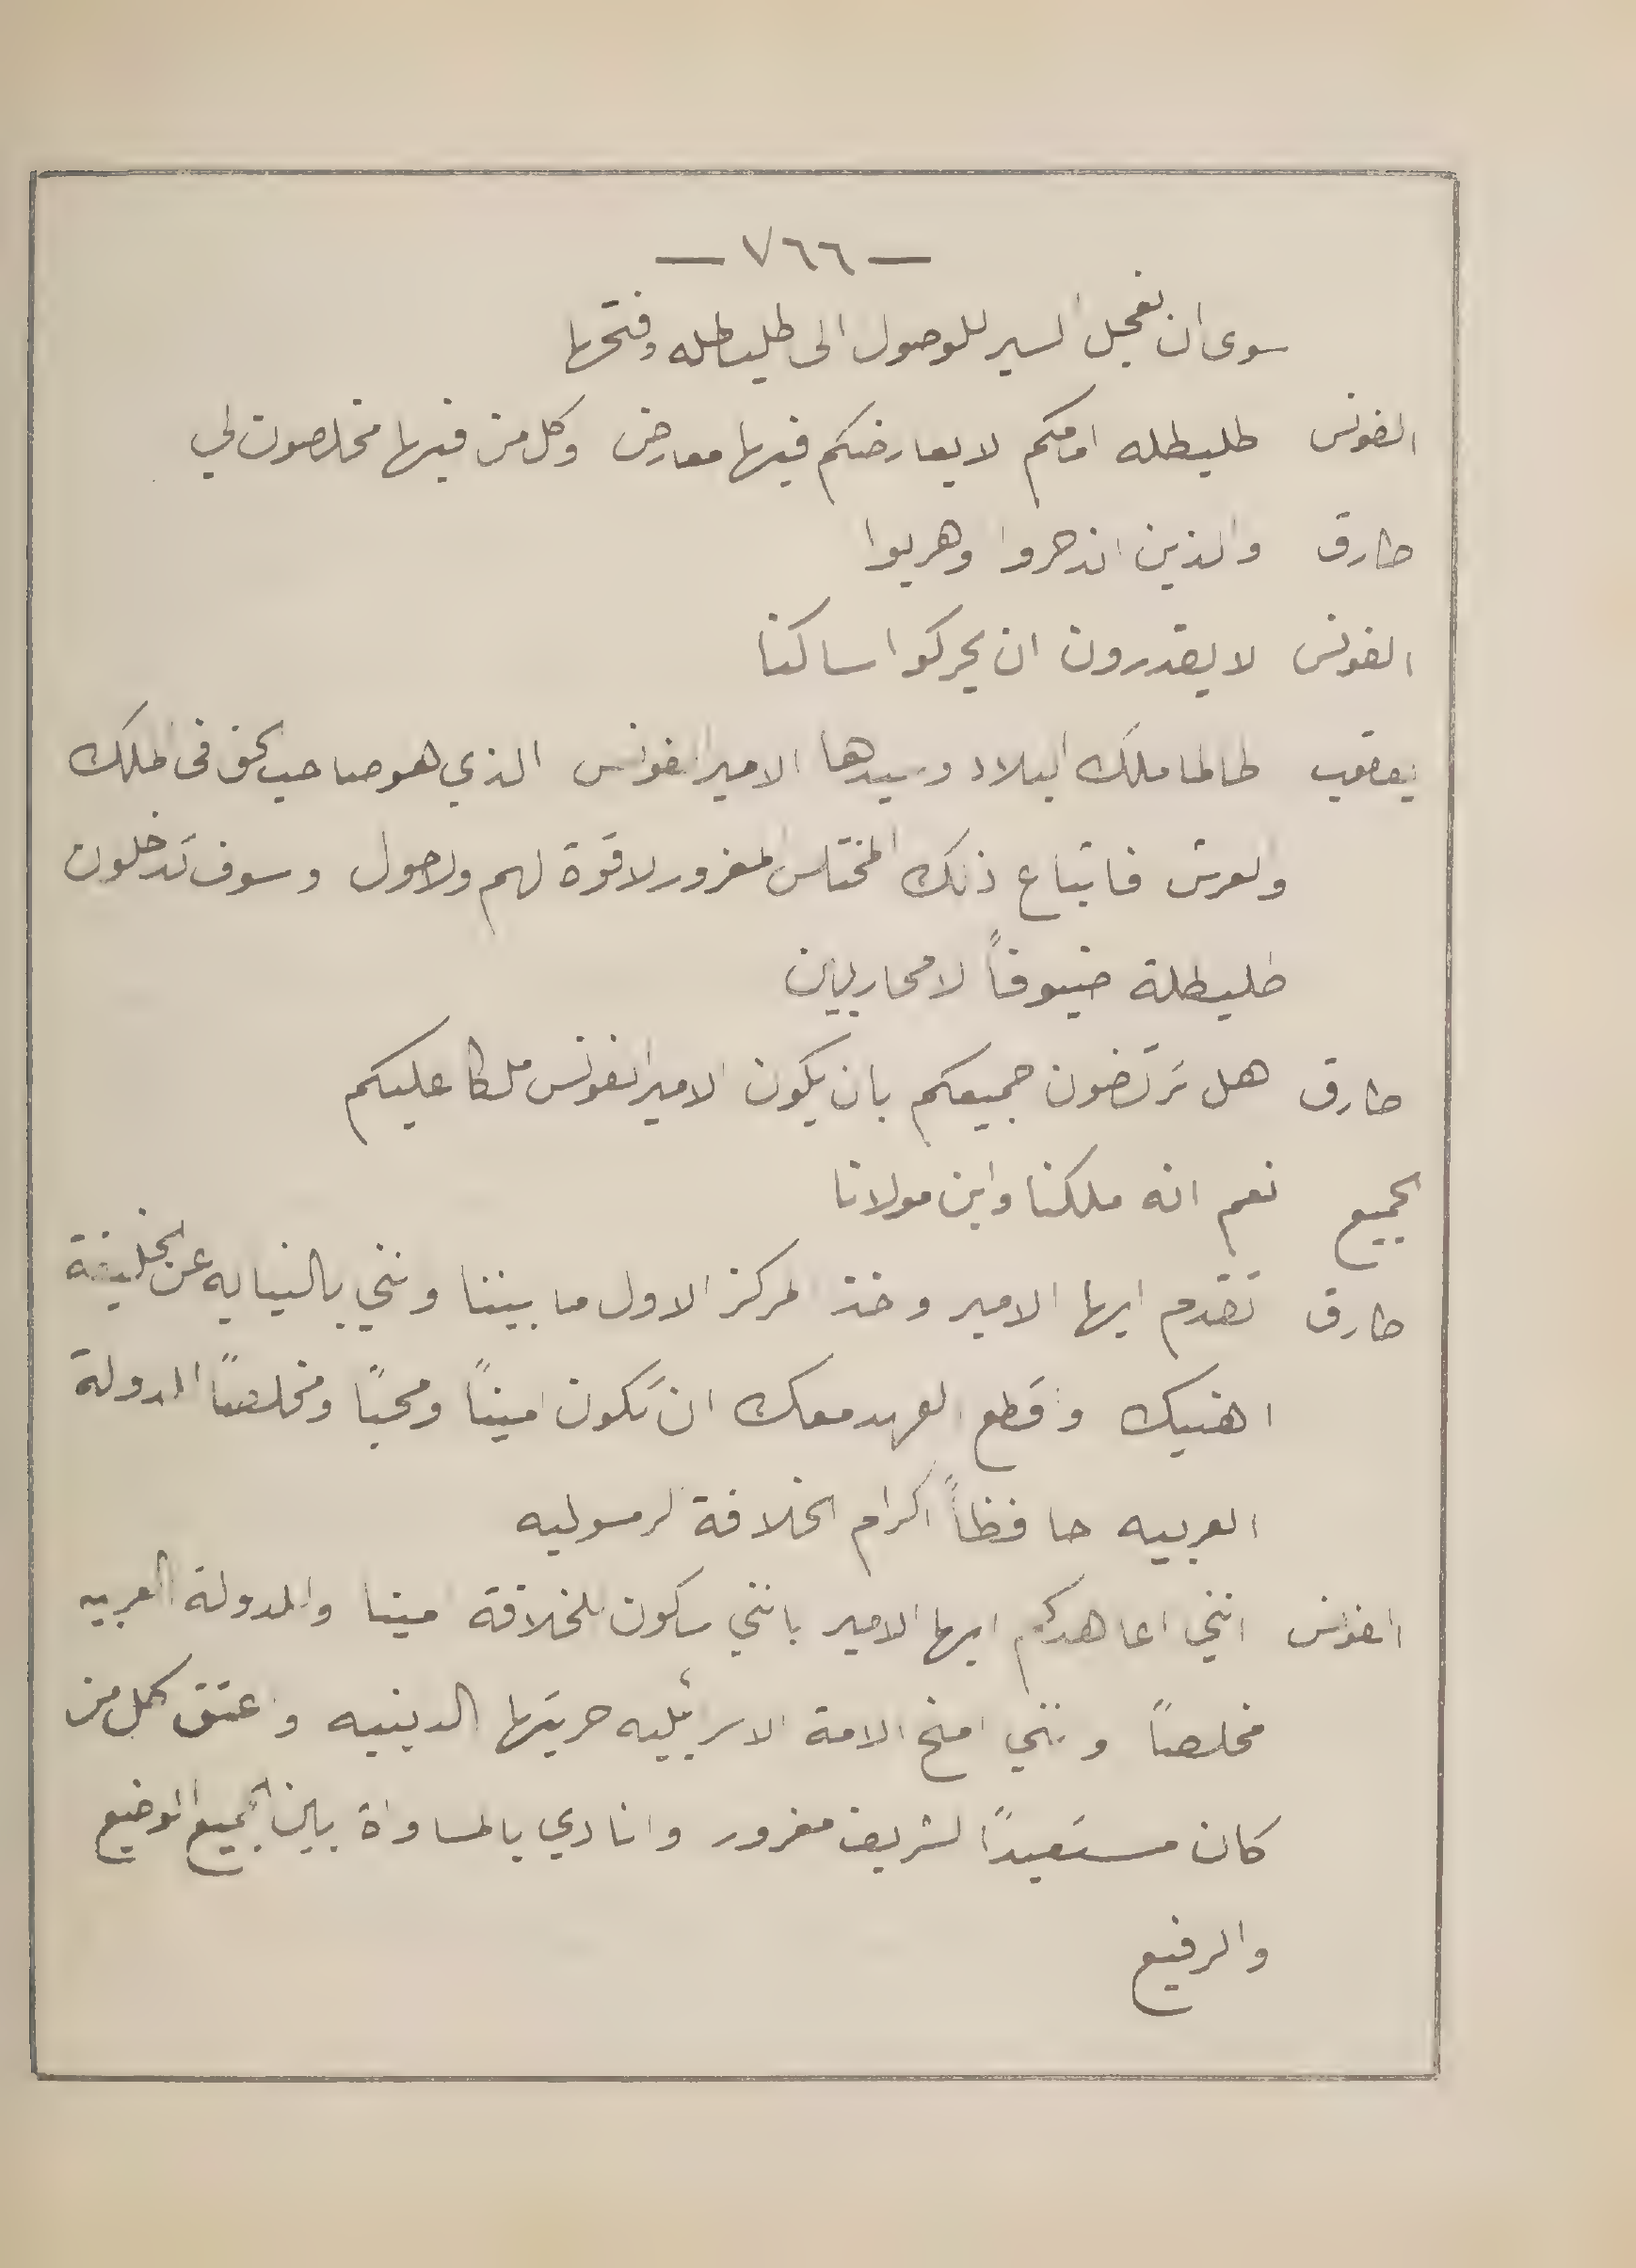 — ٧٦٦ —
سوى ان نعجل السير للوصول الى طليطله وفتحها
الفونس طليطله امامكم لا يعارضكم فيها معارض وكل من فيها مخلصون لي
طارق والذين اندحروا وهربوا
الفونس لا يقدرون ان يحركوا ساكنا
يعقوب طالما ملك البلاد وسيدها الامير الفونس الذي هو صاحب الحق في الملك
والعرش فاتباع ذلك المختلس المغرور لا قوة لهم ولا حول وسوف تدخلون
طليطلة ضيوفاً لا محاربين
طارق هل ترتضون جميعكم بان يكون الامير الفونس ملكا عليكم
الجميع نعم انه ملكنا وابن مولانا
طارق تقدم ايها الامير وخذ المركز الاول ما بيننا وانني بالنيابه عن الخليفة
اهنيك واقطع العهد معك ان تكون اميناً ومحباً ومخلصاً للدولة
العربيه حافظاً اكرام الخلافة الرسوليه
الفونس انني اعاهدكم ايها الامير بانني ساكون للخلافة امينا وللدولة العربيه
مخلصاً وانني امنح الامة الاسرائيليه حريتها الدينيه واعتق كل من
كان مستعبداً لشريف مغرور وانادي بالمساواة بين الجميع الوضيع
والرفيع